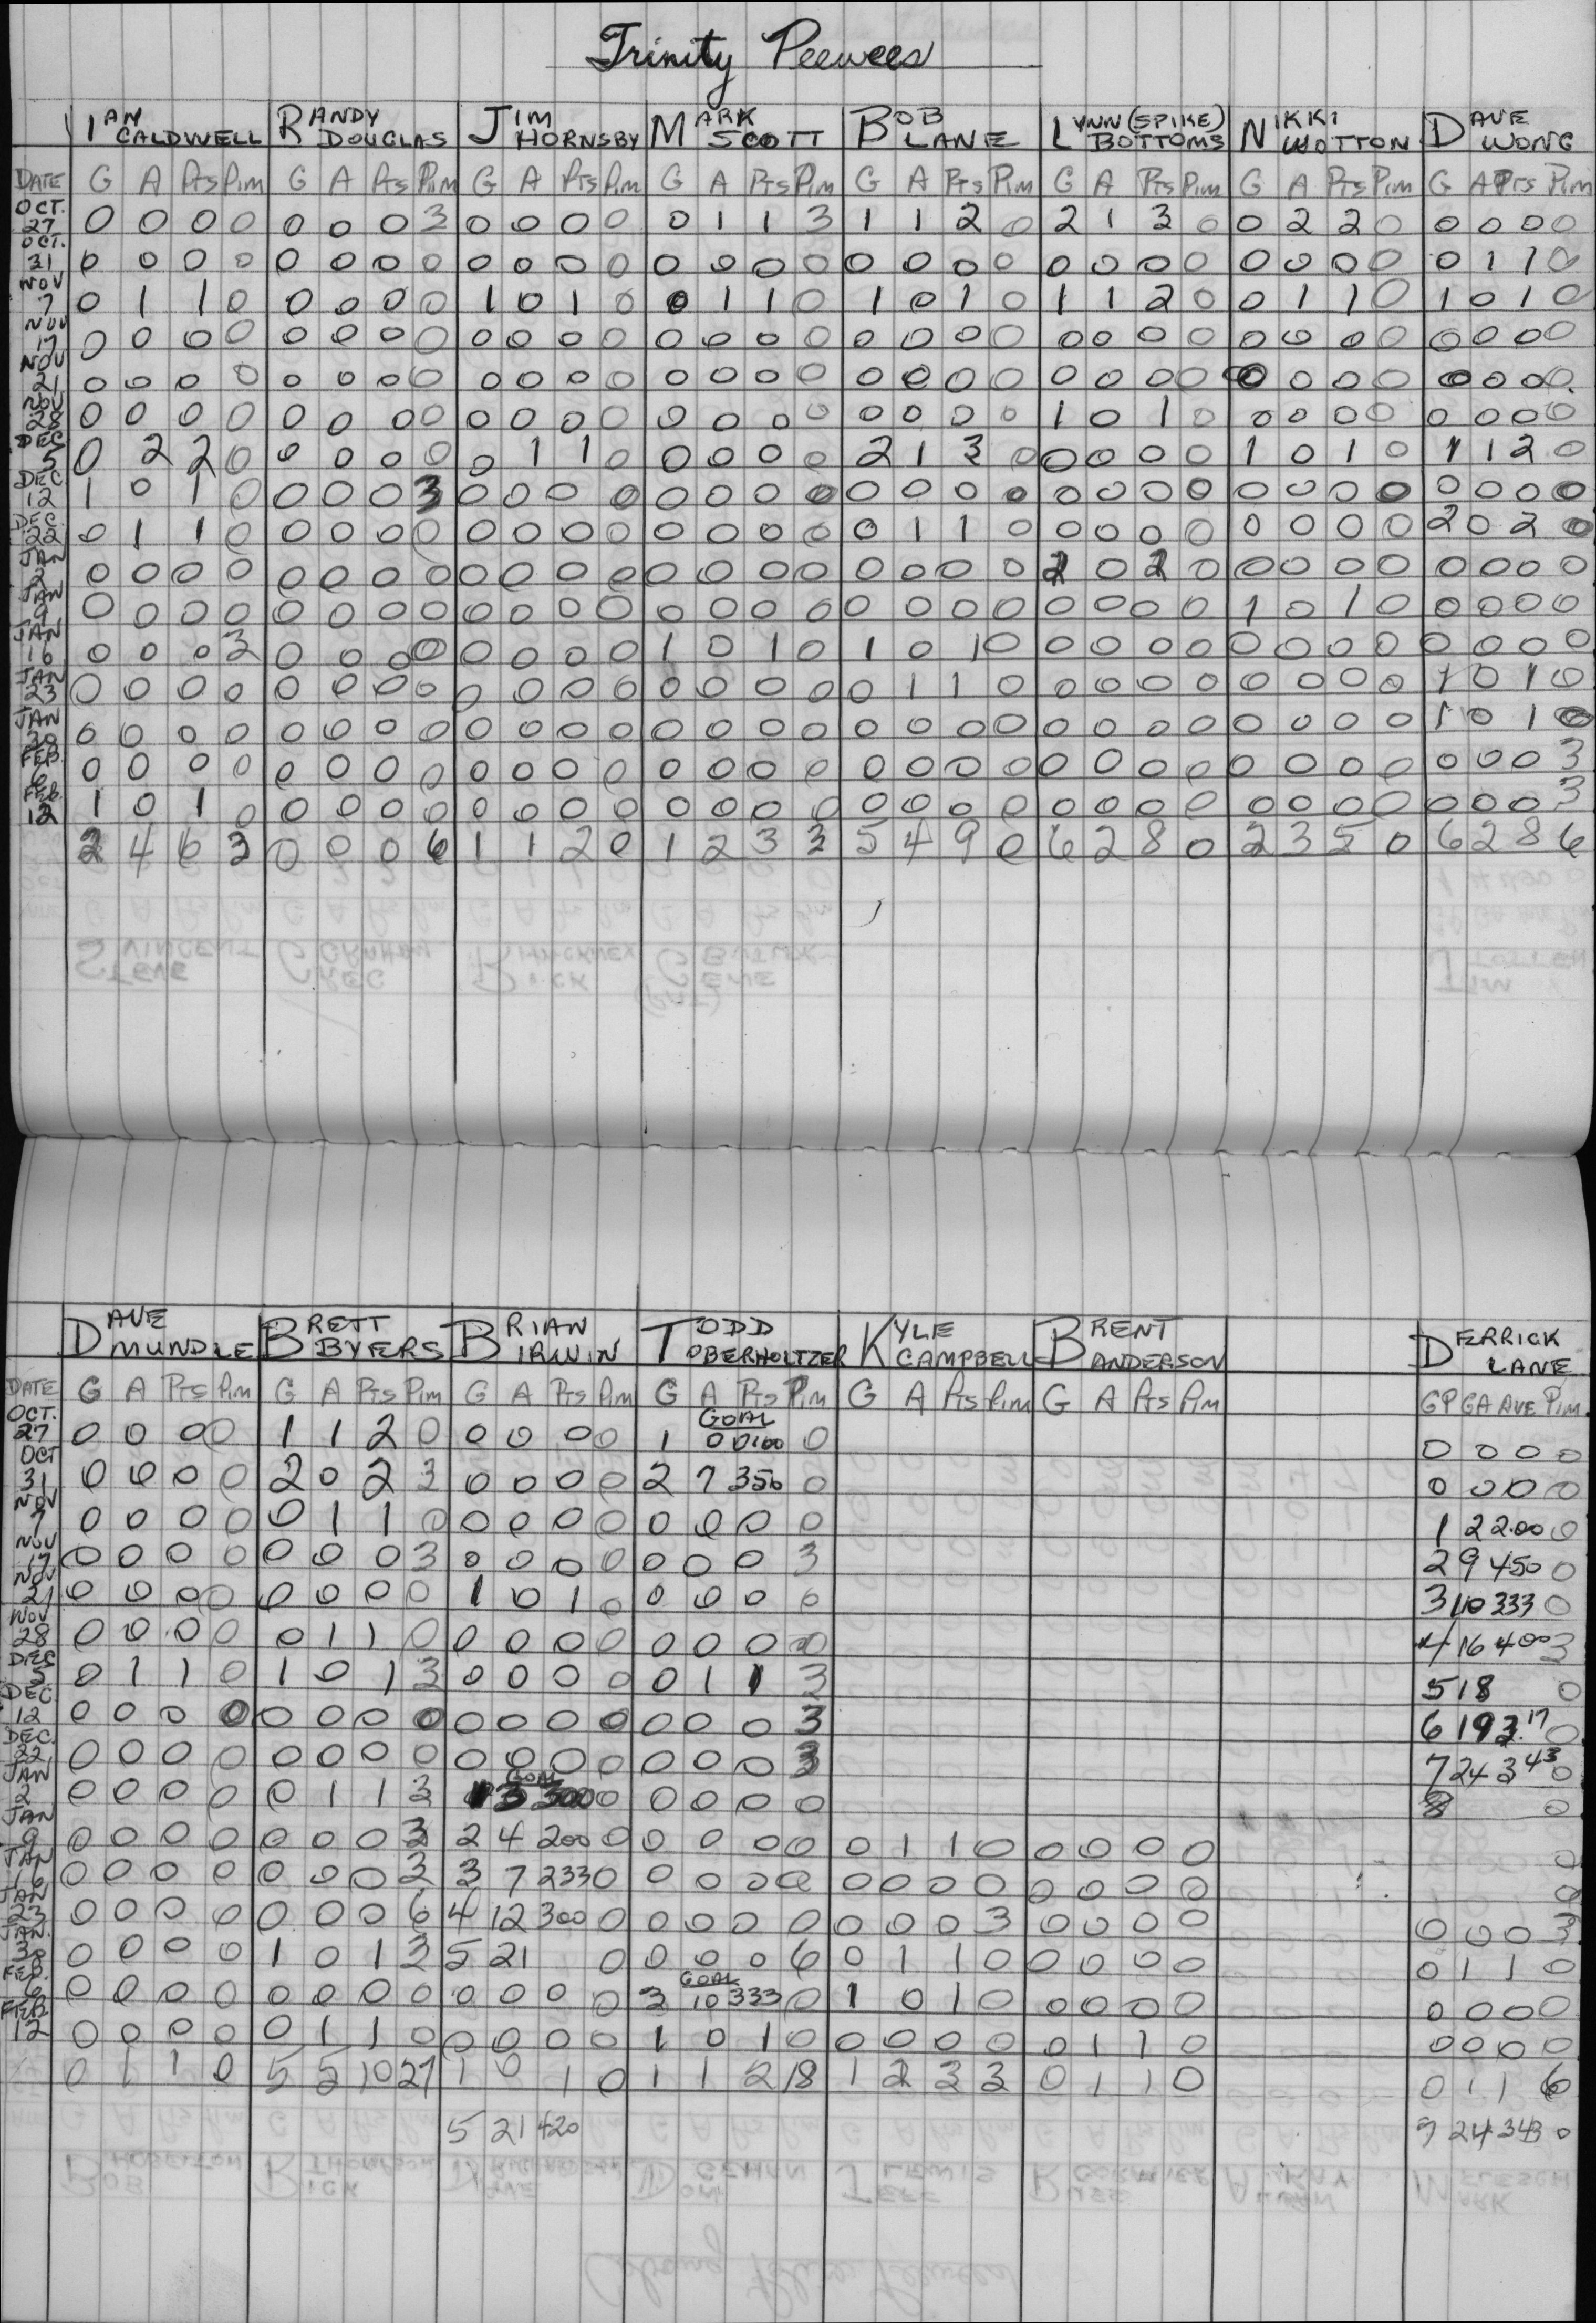 Trinity Peewees
IAN CALDWELL RANDY DOUGLAS JIM HORNSBY MARK SCOTT BOB LANE LYNN (SPIKE) BOTTOMS NIKKI WOTTON DAVE WONG
DATE G A Pts Pim G A Pts Pim G A Pts Pim G A Pts Pim G A Pts Pim G A Pts Pim G A Pts Pim G A Pts Pim
OCT. 27 0 0 0 0 0 0 0 3 0 0 0 0 0 1 1 3 1 1 2 0 2 1 3 0 0 2 2 0 0 0 0 0
OCT. 31 0 0 0 0 0 0 0 0 0 0 0 0 0 0 0 0 0 0 0 0 0 0 0 0 0 0 0 0 0 1 1 0
NOV 7 0 1 1 0 0 0 0 0 1 0 1 0 0 1 1 0 1 0 1 0 1 1 2 0 0 1 1 0 1 0 1 0
NOV 17 0 0 0 0 0 0 0 0 0 0 0 0 0 0 0 0 0 0 0 0 0 0 0 0 0 0 0 0 0 0 0 0
NOV 21 0 0 0 0 0 0 0 0 0 0 0 0 0 0 0 0 0 0 0 0 0 0 0 0 0 0 0 0 0 0 0 0
NOV 28 0 0 0 0 0 0 0 0 0 0 0 0 0 0 0 0 0 0 0 0 1 0 1 0 0 0 0 0 0 0 0 0
DEC 5 0 2 2 0 0 0 0 0 0 1 1 0 0 0 0 0 2 1 3 0 0 0 0 0 1 0 1 0 1 1 2 0
DEC 12 1 0 1 0 0 0 0 3 0 0 0 0 0 0 0 0 0 0 0 0 0 0 0 0 0 0 0 0 0 0 0 0
DEC. 22 0 1 1 0 0 0 0 0 0 0 0 0 0 0 0 0 0 1 1 0 0 0 0 0 0 0 0 0 2 0 2 0
JAN 2 0 0 0 0 0 0 0 0 0 0 0 0 0 0 0 0 0 0 0 0 2 0 2 0 0 0 0 0 0 0 0 0
JAN 9 0 0 0 0 0 0 0 0 0 0 0 0 0 0 0 0 0 0 0 0 0 0 0 0 1 0 1 0 0 0 0 0
JAN 16 0 0 0 3 0 0 0 0 0 0 0 0 1 0 1 0 1 0 1 0 0 0 0 0 0 0 0 0 0 0 0 0
JAN 23 0 0 0 0 0 0 0 0 0 0 0 0 0 0 0 0 0 1 1 0 0 0 0 0 0 0 0 0 1 0 1 0
JAN 30 0 0 0 0 0 0 0 0 0 0 0 0 0 0 0 0 0 0 0 0 0 0 0 0 0 0 0 0 1 0 1 0
FEB. 6 0 0 0 0 0 0 0 0 0 0 0 0 0 0 0 0 0 0 0 0 0 0 0 0 0 0 0 0 0 0 0 3
FEB. 12 1 0 1 0 0 0 0 0 0 0 0 0 0 0 0 0 0 0 0 0 0 0 0 0 0 0 0 0 0 0 0 3
2 4 6 3 0 0 0 6 1 1 2 0 1 2 3 3 5 4 9 0 6 2 8 0 2 3 5 0 6 2 8 6
DAVE MUNDLE BRETT BYERS BRIAN IRWIN TODD OBERHOLTZER KYLE CAMPBELL BRENT ANDERSON DERRICK LANE
DATE G A Pts Pim G A Pts Pim G A Pts Pim G A Pts Pim G A Pts Pim G A Pts Pim GP GA AVE Pim
OCT. 27 0 0 0 0 1 1 2 0 0 0 0 0 GOAL 1 0 0.00 0 0 0 0 0
OCT 31 0 0 0 0 2 0 2 3 0 0 0 0 2 7 350 0 0 0 0 0
NOV 7 0 0 0 0 0 1 1 0 0 0 0 0 0 0 0 0 1 2 2.00 0
NOV 17 0 0 0 0 0 0 0 3 0 0 0 0 0 0 0 3 2 9 450 0
NOV 21 0 0 0 0 0 0 0 0 1 0 1 0 0 0 0 0 3 10 333 0
NOV 28 0 0 0 0 0 1 1 0 0 0 0 0 0 0 0 0 4 16 400 3
DEC 5 0 1 1 0 1 0 1 3 0 0 0 0 0 1 1 3 5 18 0
DEC. 12 0 0 0 0 0 0 0 0 0 0 0 0 0 0 0 3 6 19 3.17 0
DEC. 22 0 0 0 0 0 0 0 0 0 0 0 0 0 0 0 3 7 24 3 43 0
JAN 2 0 0 0 0 0 1 1 3 GOAL 1 3 300 0 0 0 0 0 8 0
JAN 9 0 0 0 0 0 0 0 3 2 4 200 0 0 0 0 0 0 1 1 0 0 0 0 0 0
JAN 16 0 0 0 0 0 0 0 3 3 7 233 0 0 0 0 0 0 0 0 0 0 0 0 0 0
JAN 23 0 0 0 0 0 0 0 6 4 12 300 0 0 0 0 0 0 0 0 3 0 0 0 0 0 0 0 3
JAN. 30 0 0 0 0 1 0 1 3 5 21 0 0 0 0 6 0 1 1 0 0 0 0 0 0 1 1 0
FEB. 6 0 0 0 0 0 0 0 0 0 0 0 0 GOAL 3 10 333 0 1 0 1 0 0 0 0 0 0 0 0 0
FEB 12 0 0 0 0 0 1 1 0 0 0 0 0 1 0 1 0 0 0 0 0 0 1 1 0 0 0 0 0
0 1 1 0 5 5 10 27 1 0 1 0 1 1 2 18 1 2 3 3 0 1 1 0 0 1 1 6
5 21 420 7 24 343 0